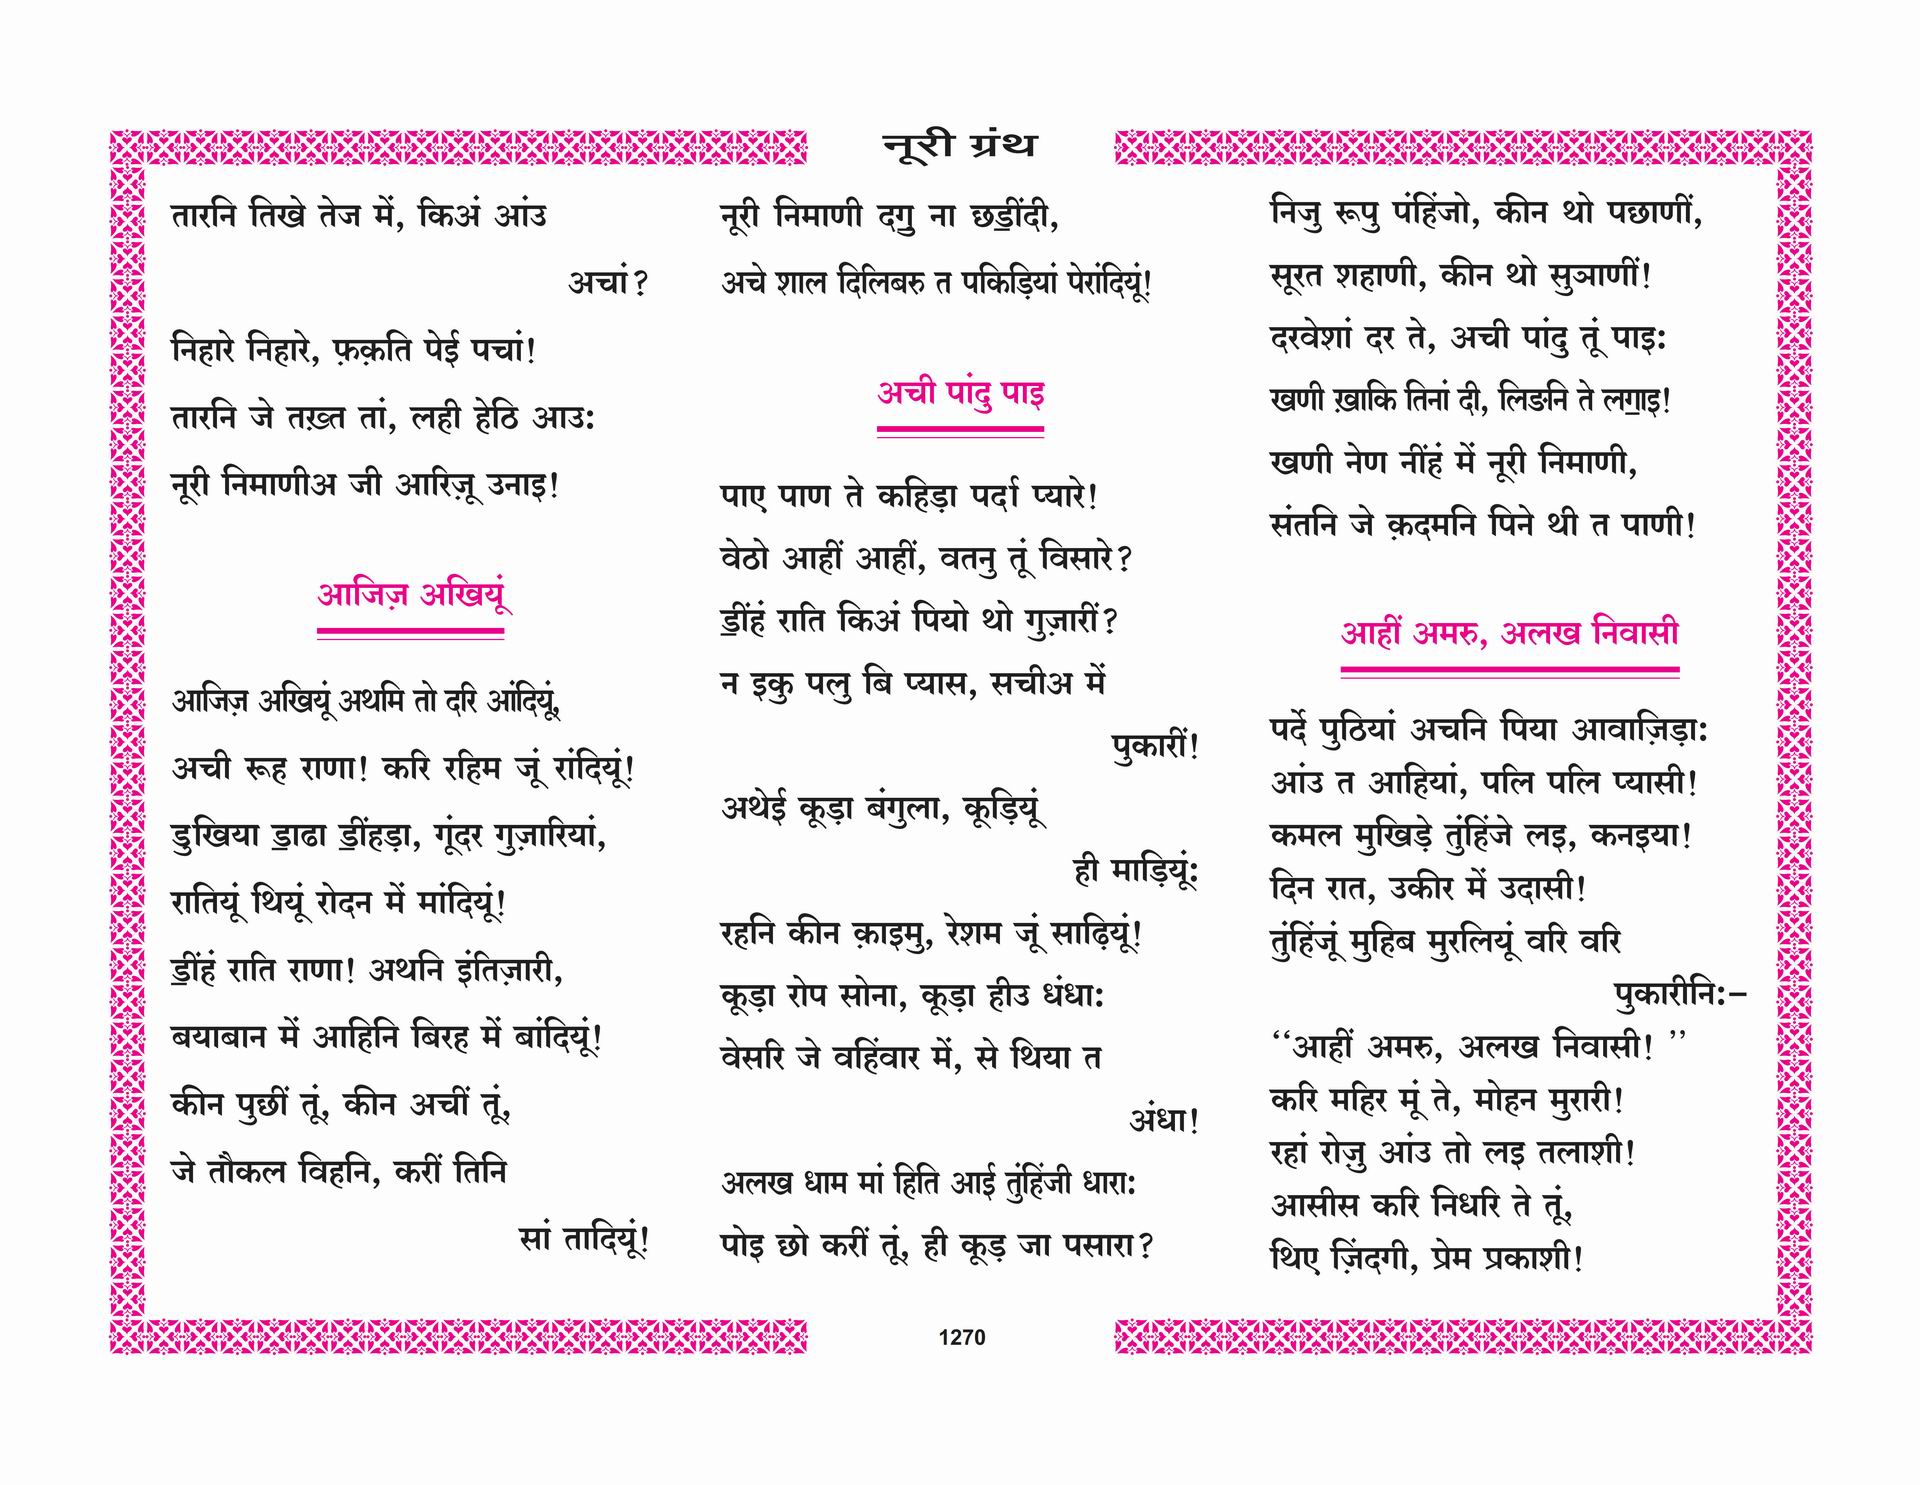 नूरी ग्रंथ
तारनि तिखे तेज में, किअं आंउ
अचां?
निहारे निहारे, फ़क़ति पेई पचां!
तारनि जे तख़्त तां, लही हेठि आउ:
नूरी निमाणीअ जी आरिज़ू उनाइ!
आजिज़ अखियूं
आजिज़ अखियूं अथमि तो दरि आंदियूं,
अची रूह राणा! करि रहिम जूं रांदियूं!
डुखिया ॾाढा ॾींहड़ा, गूंदर गुज़ारियां,
रातियूं थियूं रोदन में मांदियूं!
ॾींहं राति राणा! अथनि इंतिज़ारी,
बयाबान में आहिनि बिरह में बांदियूं!
कीन पुछीं तूं, कीन अचीं तूं,
जे तौकल विहनि, करीं तिनि
सां तादियूं!
नूरी निमाणी दॻु ना छॾींदी,
अचे शाल दिलिबरु त पकिड़ियां पेरांदियूं!
अची पांदु पाइ
पाए पाण ते कहिड़ा पर्दा प्यारे!
वेठो आहीं आहीं, वतनु तूं विसारे?
ॾींहं राति किअं पियो थो गुज़ारीं?
न इकु पलु बि प्यास, सचीअ में
पुकारीं!
अथेई कूड़ा बंगुला, कूड़ियूं
ही माड़ियूं:
रहनि कीन क़ाइमु, रेशम जूं साढ़ियूं!
कूड़ा रोप सोना, कूड़ा हीउ धंधा:
वेसरि जे वहिंवार में, से थिया त
अंधा!
अलख धाम मां हिति आई तुंहिंजी धारा:
पोइ छो करीं तूं, ही कूड़ जा पसारा?
निजु रूपु पंहिंजो, कीन थो पछाणीं,
सूरत शहाणी, कीन थो सुञाणीं!
दरवेशां दर ते, अची पांदु तूं पाइ:
खणी ख़ाकि तिनां दी, लिङनि ते लॻाइ!
खणी नेण नींहं में नूरी निमाणी,
संतनि जे क़दमनि पिने थी त पाणी!
आहीं अमरु, अलख निवासी
पर्दे पुठियां अचनि पिया आवाज़िड़ा:
आंउ त आहियां, पलि पलि प्यासी!
कमल मुखिड़े तुंहिंजे लइ, कनइया!
दिन रात, उकीर में उदासी!
तुंहिंजूं मुहिब मुरलियूं वरि वरि
पुकारीनि:–
‘‘आहीं अमरु, अलख निवासी! ’’
करि महिर मूं ते, मोहन मुरारी!
रहां रोज़ु आंउ तो लइ तलाशी!
आसीस करि निधरि ते तूं,
थिए ज़िंदगी, प्रेम प्रकाशी!
1270